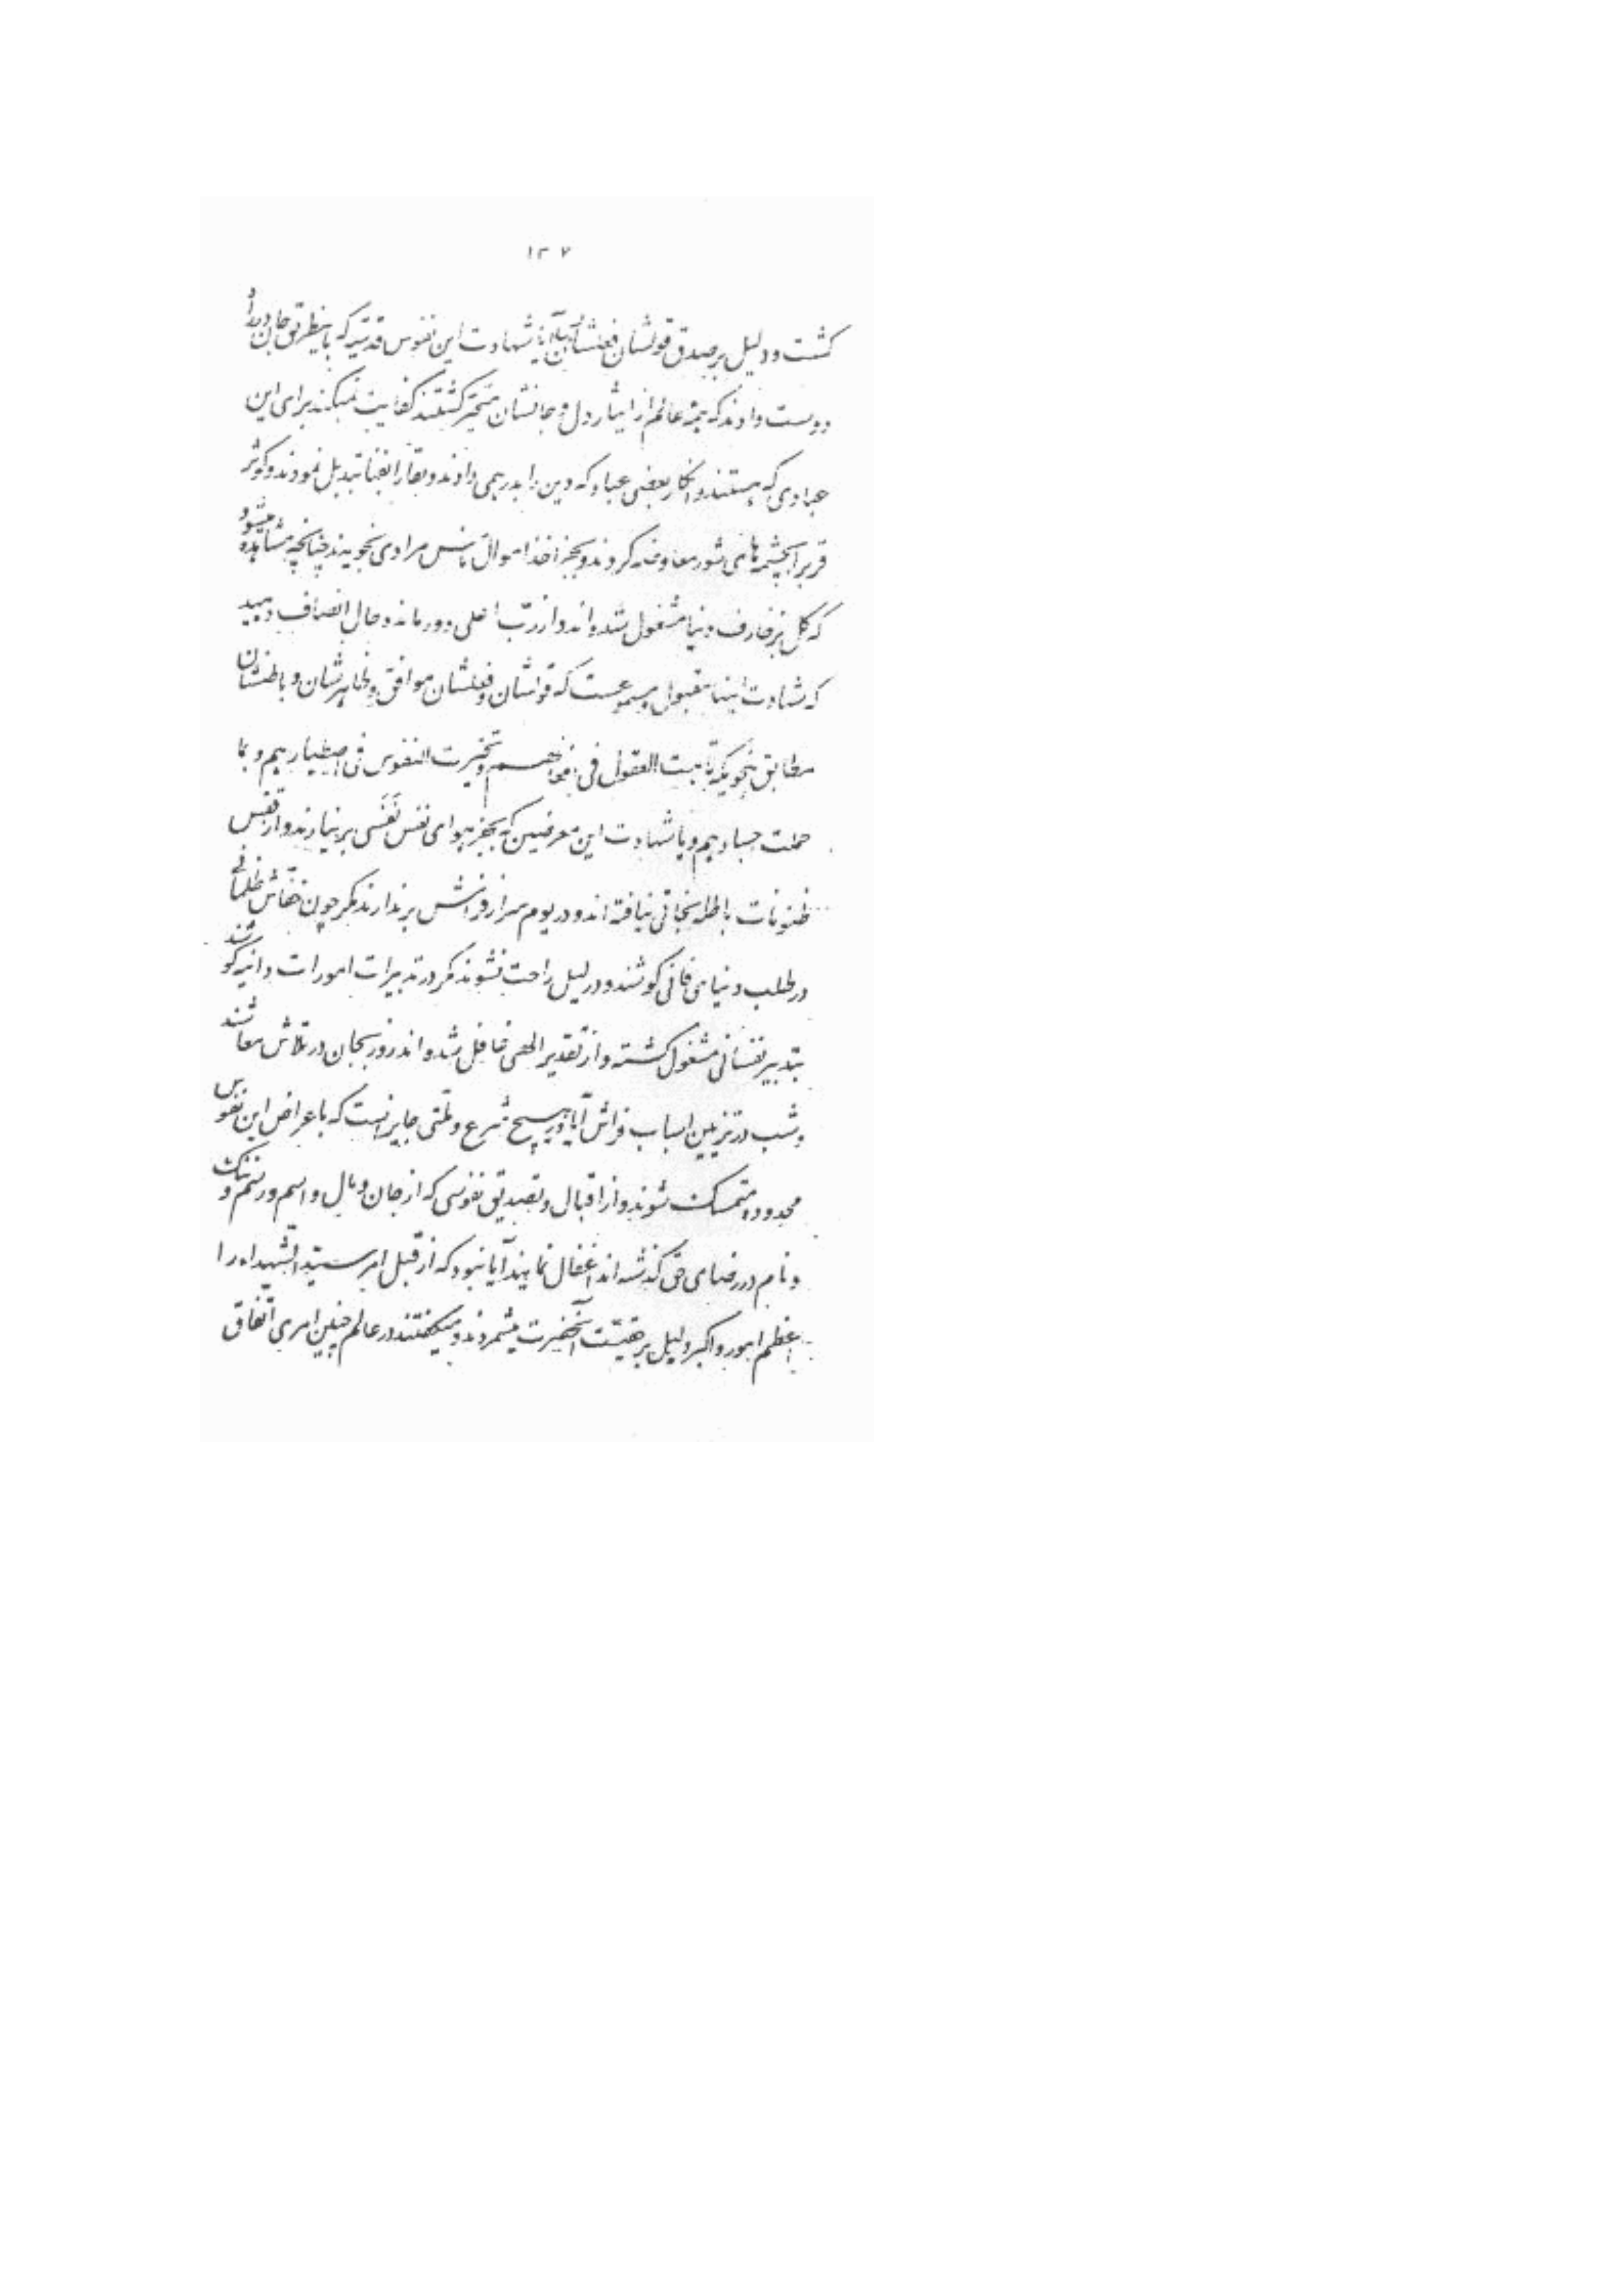 ۱۳۷
کشت و دلیل بر صدق قولشان فعلشان آیا شهادت این نفوس قدسیه که باینطریق جان در راه
دوست دادند که همه عالم از ایثار دل و جانشان متحیر کشتند کفایت نمیکند برای این
عبادی که هستند و انکار بعضی عباد که دین را بدرهمی دادند و بقا را بفنا تبدیل نمودند و کوثر
قرب را بچشمه‌های شور معاوضه کردند و بجز اخذ اموال ناس مرادی نجویند چنانچه مشاهده میشود
که کل بزخارف دنیا مشغول شده‌اند و از ربّ اعلی دور مانده حال انصاف دهید
که شهادت اینها مقبول و مسموعست که قولشان و فعلشان موافق و ظاهرشان و باطنشان
مطابق بنحویکه تاهت العقول فی افعالهم و تحیرت النفوس فی اصطبارهم و بما
حملت اجسادهم و یا شهادت این معرضین که بجز هوای نفس نَفَسی بر نیارند و از قفس
ظنونات باطله نجاتی نیافته‌اند و در یوم سر از فراش بر ندارند مکر چون خفّاش ظلمانی
در طلب دنیای فانی کوشند و در لیل راحت نشوند مکر در تدبیرات امورات دانیه کوشند
بتدبیر نفسانی مشغول کشته و از تقدیر الهی غافل شده‌اند روز بجان در تلاش معاشند
و شب در تزیین اسباب فراش آیا در هیچ شرع و ملّتی جایز است که باعراض این نفوس
محدوده متمسک شوند و از اقبال و تصدیق نفوسی که از جان و مال و اسم و رسم و ننک
و نام در رضای حق کذشته‌اند اغفال نمایند آیا نبود که از قبل امر سیّد الشهداء را
اعظم امور و اکبر دلیل بر حقیّت آنحضرت میشمردند و میکفتند در عالم چنین امری اتّفاق